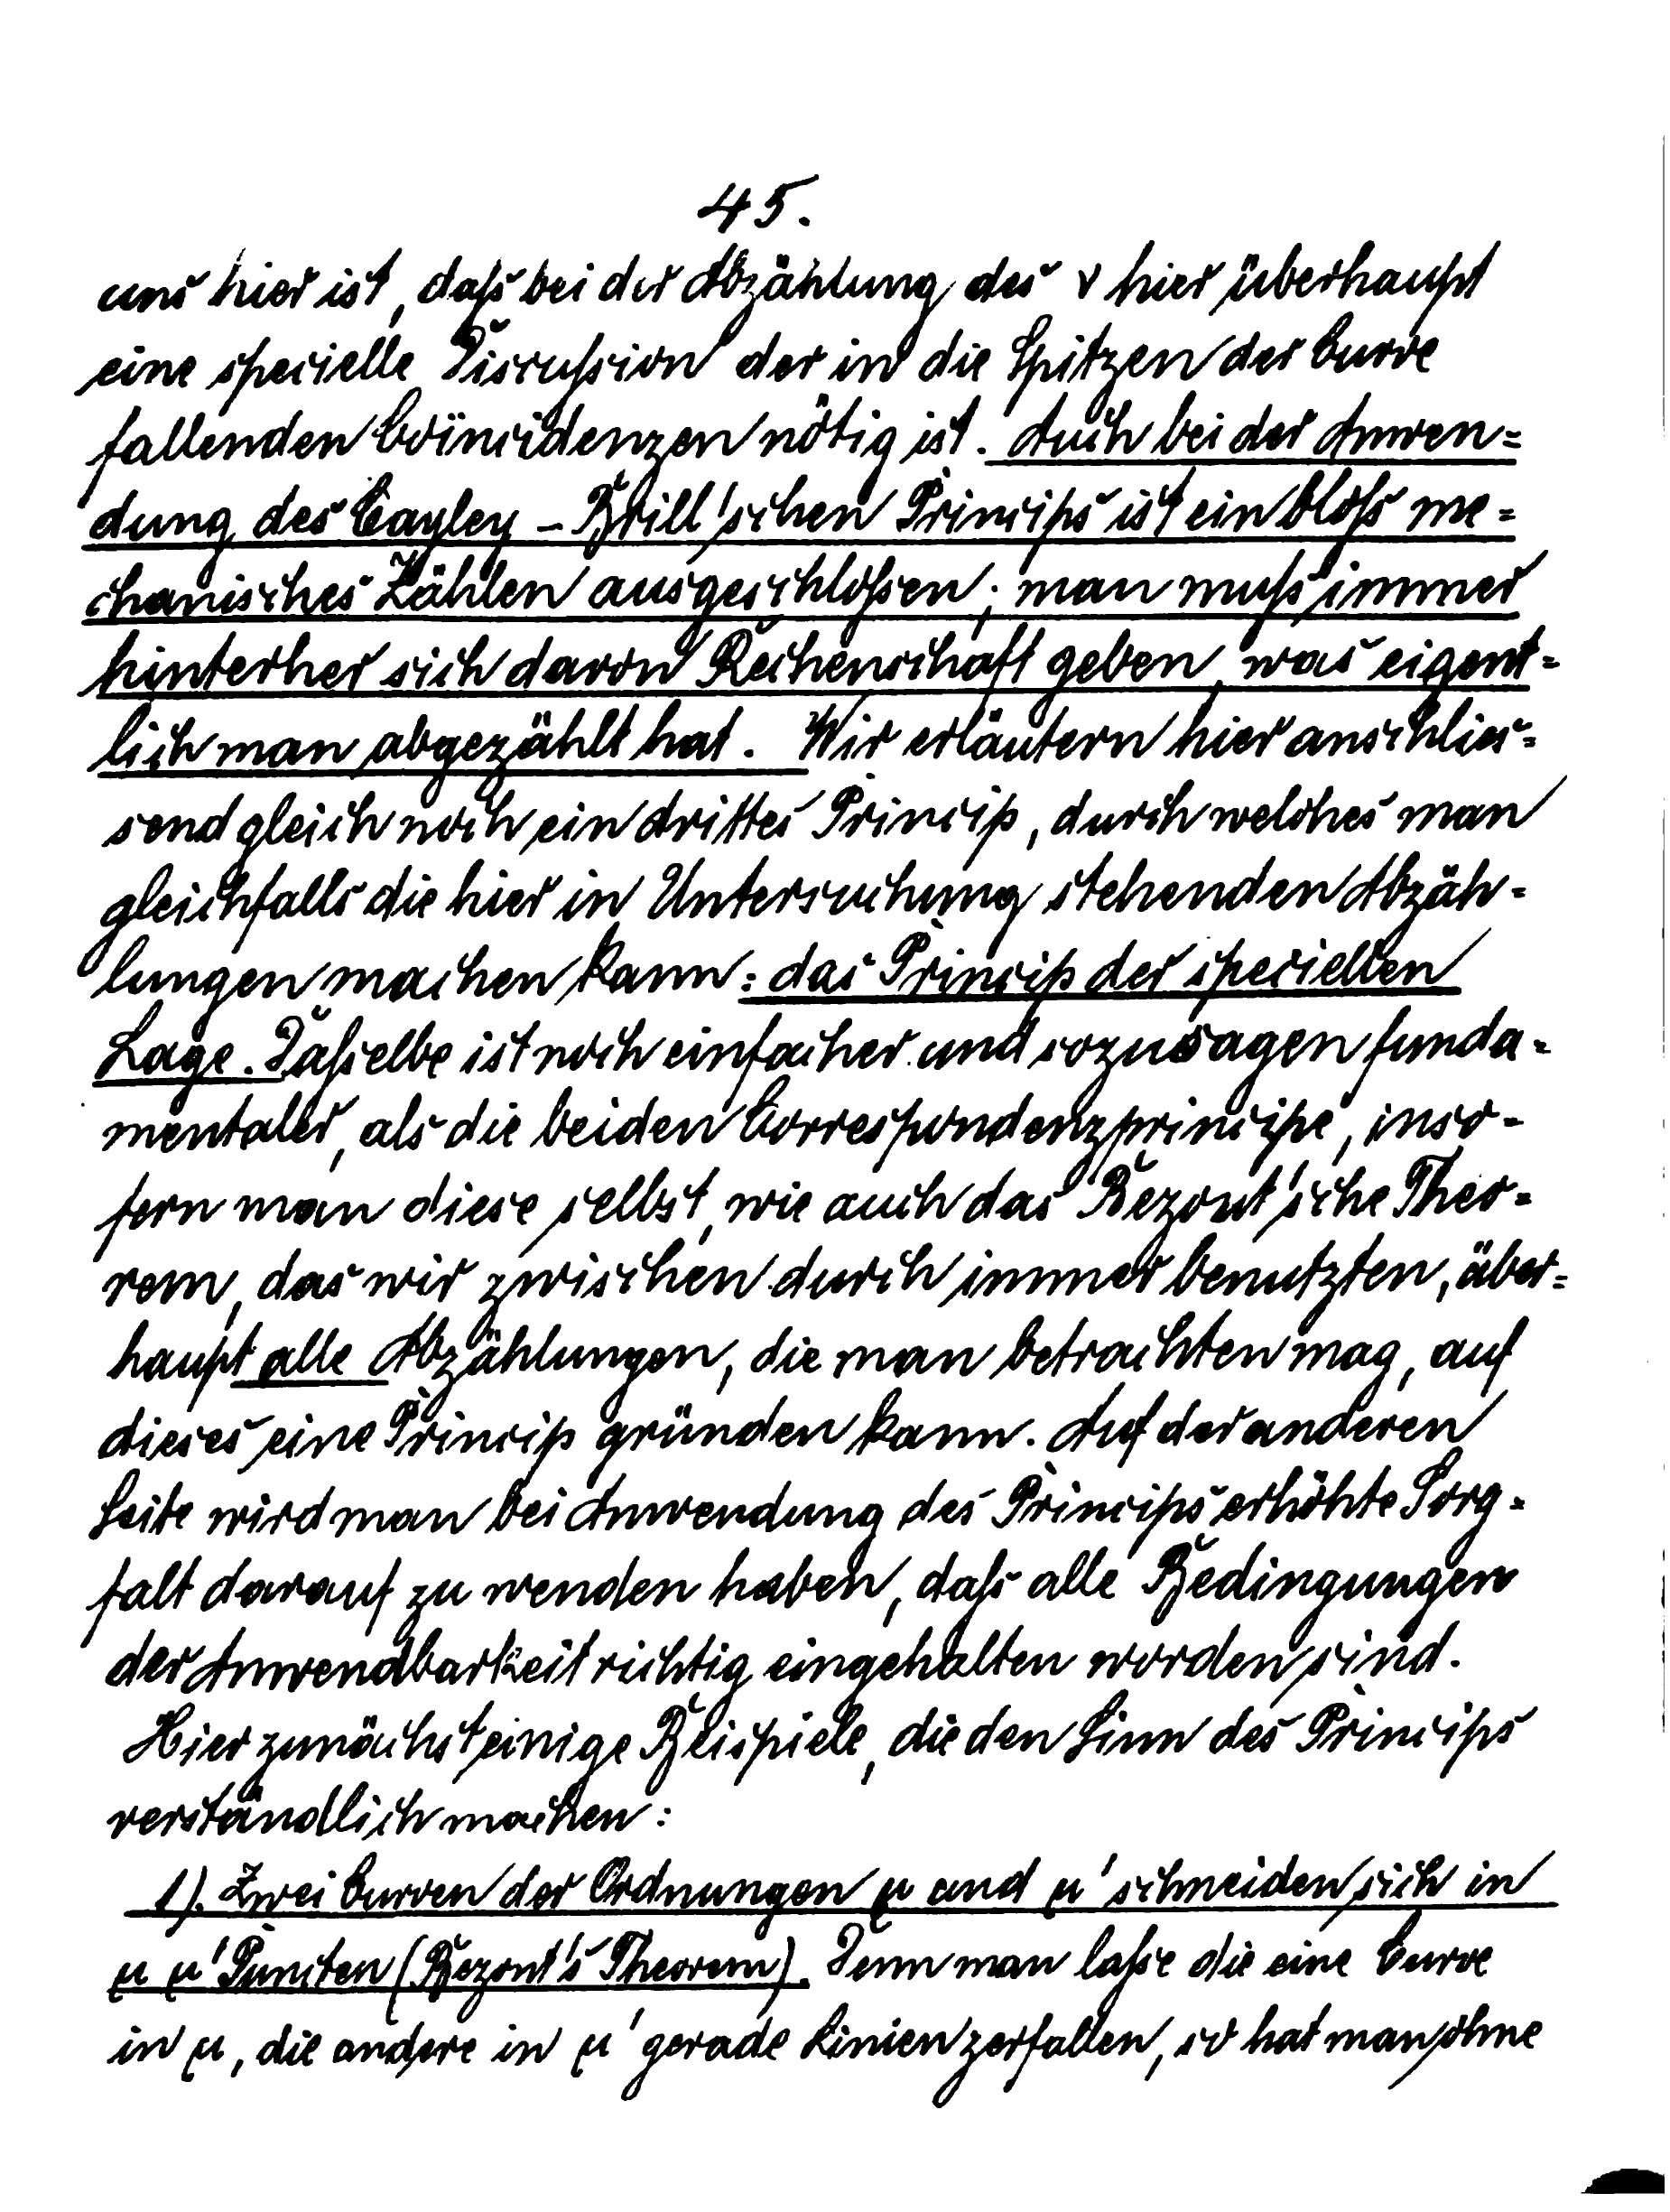 45.
uns hier ist, daß bei der Abzählung des ν hier überhaupt
eine specielle Discußion der in die Spitzen der Curve
fallenden Coïncidenzen nötig ist. Auch bei der Anwen=
dung des Cayley - Brill'schen Princips ist ein bloß me=
chanisches Zählen ausgeschloßen; man muß immer
hinterher sich davon Rechenschaft geben, was eigent=
lich man abgezählt hat. Wir erläutern hier anschlies=
send gleich noch ein drittes Princip, durch welches man
gleichfalls die hier in Untersuchung stehenden Abzäh=
lungen machen kann: das Princip der speciellen
Lage. Daßelbe ist noch einfacher und sozusagen funda=
mentaler, als die beiden Correspondenzprincipe, inso=
fern man diese selbst, wie auch das Bezout'sche Theo=
rem, das wir zwischen durch immer benutzten, über=
haupt alle Abzählungen, die man betrachten mag, auf
dieses eine Princip gründen kann. Auf der anderen
Seite wird man bei Anwendung des Princips erhöhte Sorg=
falt darauf zu wenden haben, daß alle Bedingungen
der Anwendbarkeit richtig eingehalten worden sind.
Hier zunächst einige Beispiele, die den Sinn des Princips
verständlich machen:
1). Zwei Curven der Ordnungen μ und μ' schneiden sich in
μ μ' Puncten (Bezout's Theorem). Denn man laße die eine Curve
in μ, die andere in μ' gerade Linien zerfallen, so hat man ohne